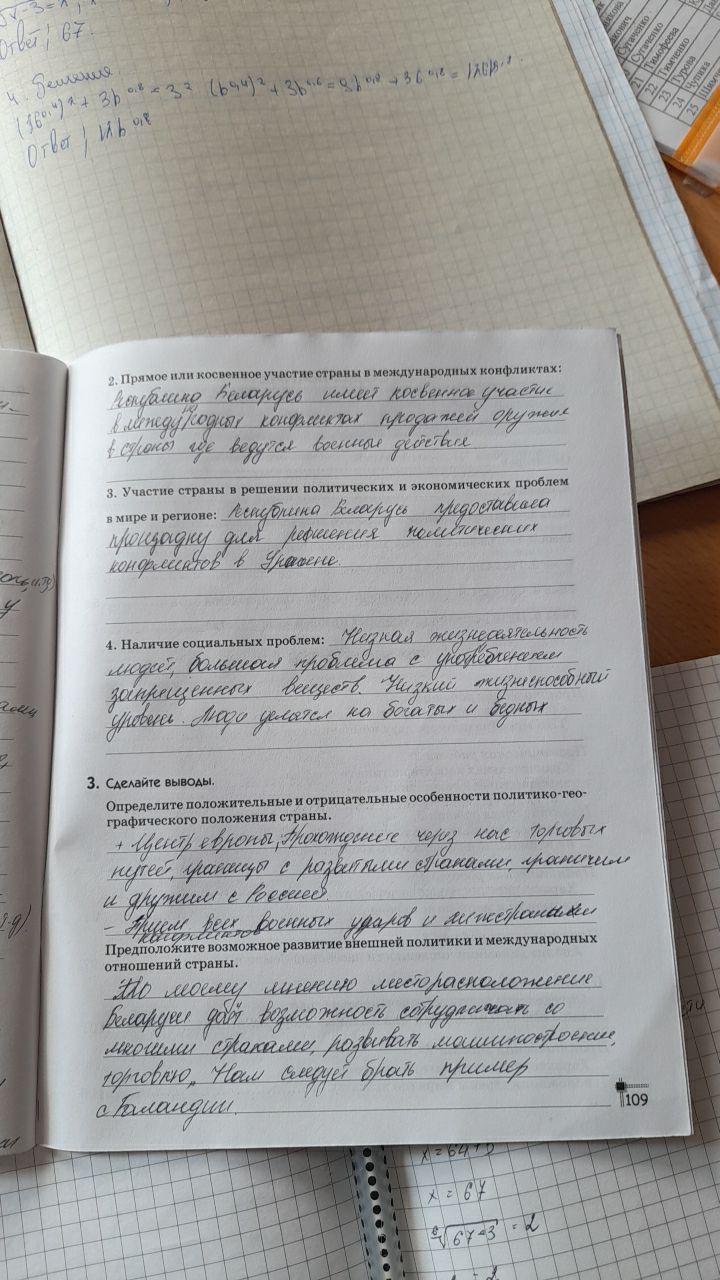 Ответ | 67.
4. Решение
(3b^0,4)^2 + 3b^0,8 = 3^2 (b^0,4)^2 + 3b^0,8 = 9b^0,8 + 3b^0,8 = 12b^0,8.
Ответ | 12b^0,8
21 Сугаченко
22 Тимофеева
23 Тимченко
24 Гурова
25 Чупиха
2. Прямое или косвенное участие страны в международных конфликтах:
Республика Беларусь имеет косвенное участие
в международных конфликтах продажей оружия
в страны где ведутся военные действия
3. Участие страны в решении политических и экономических проблем
в мире и регионе: Республика Беларусь предоставила
площадку для решения политических
конфликтов в Украине.
4. Наличие социальных проблем: Низкая жизнедеятельность
людей, большая проблема с употреблением
запрещенных веществ. Низкий жизнеспособный
уровень. Люди делятся на богатых и бедных
3. Сделайте выводы.
Определите положительные и отрицательные особенности политико-гео-
графического положения страны.
+ Центр европы, Прохождение через нас торговых
путей, границы с развитыми странами, граничим
и дружим с Россией.
– Прием всех военных ударов и
конфликтов
Предположите возможное развитие внешней политики и международных
отношений страны.
По моему мнению месторасположение
Беларуси даёт возможность сотрудничать со
многими странами, развивать машиностроение,
торговлю,, Нам следует брать пример
с
109
x = 67
⁶√67-3 = 2